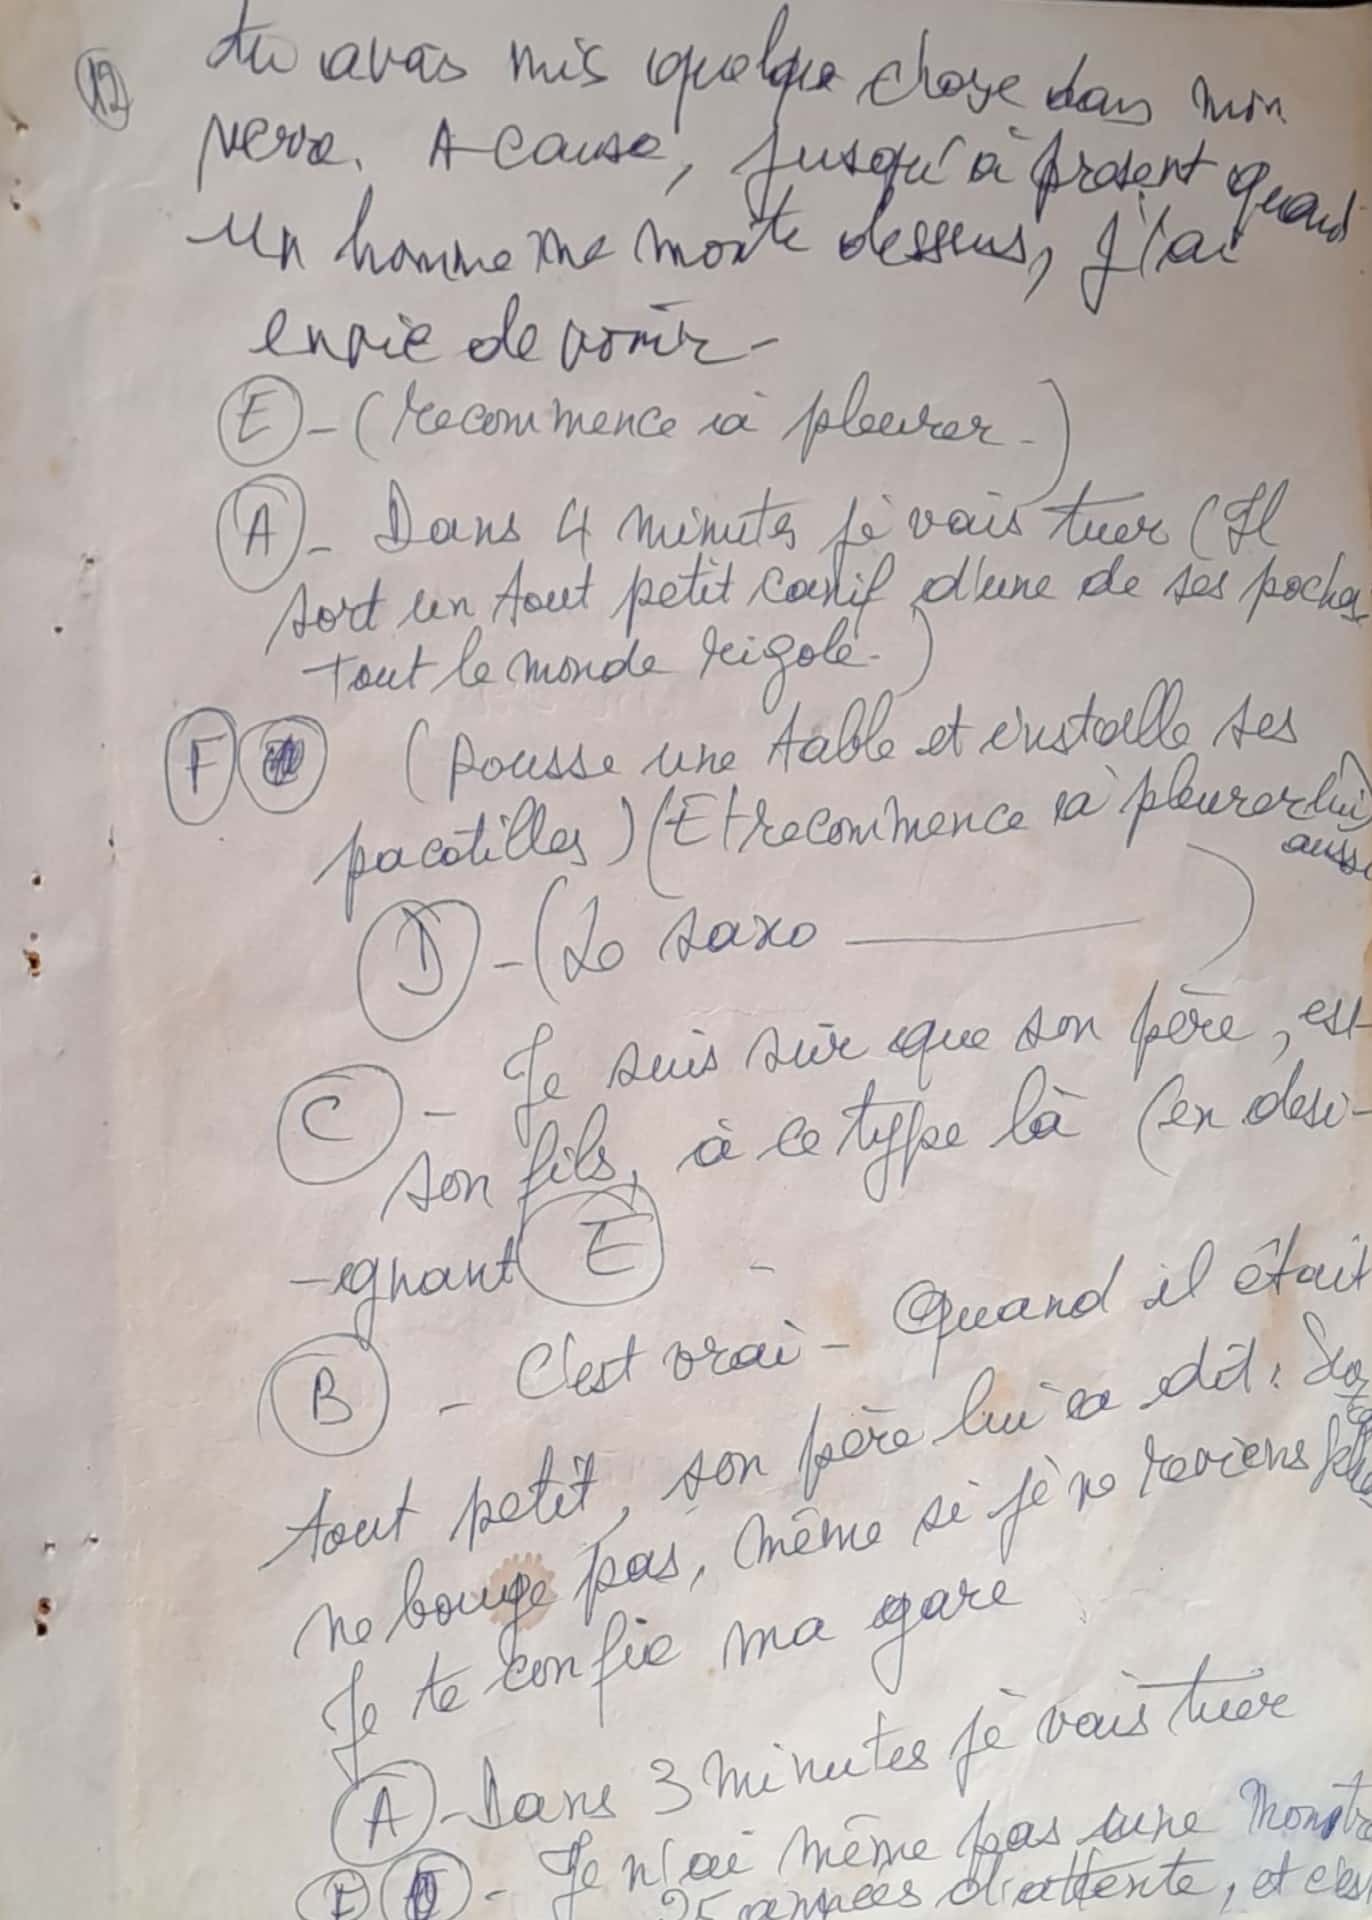 12
tu avais mis quelque chose dans mon
verre. A cause, jusqu'à présent quand
un homme me monte dessus, j'ai
envie de vomir-
E - (recommence à pleurer-)
A - Dans 4 minutes je vais tuer (Il
sort un tout petit canif d'une de ses poches
tout le monde rigole.)
F (pousse une table et installe ses
pacotilles) (E recommence à pleurer lui
aussi
D - (Le saxo ———)
C - Je suis sûr que son père, est
son fils, à ce type là (en desi-
-gnant E -
B - C'est vrai - Quand il était
tout petit, son père lui a dit:
ne bouge pas, même si je ne reviens plus
Je te confie ma gare
A - Dans 3 minutes je vais tuer
F - Je n'ai même pas une montre
25 années d'attente, et c'est